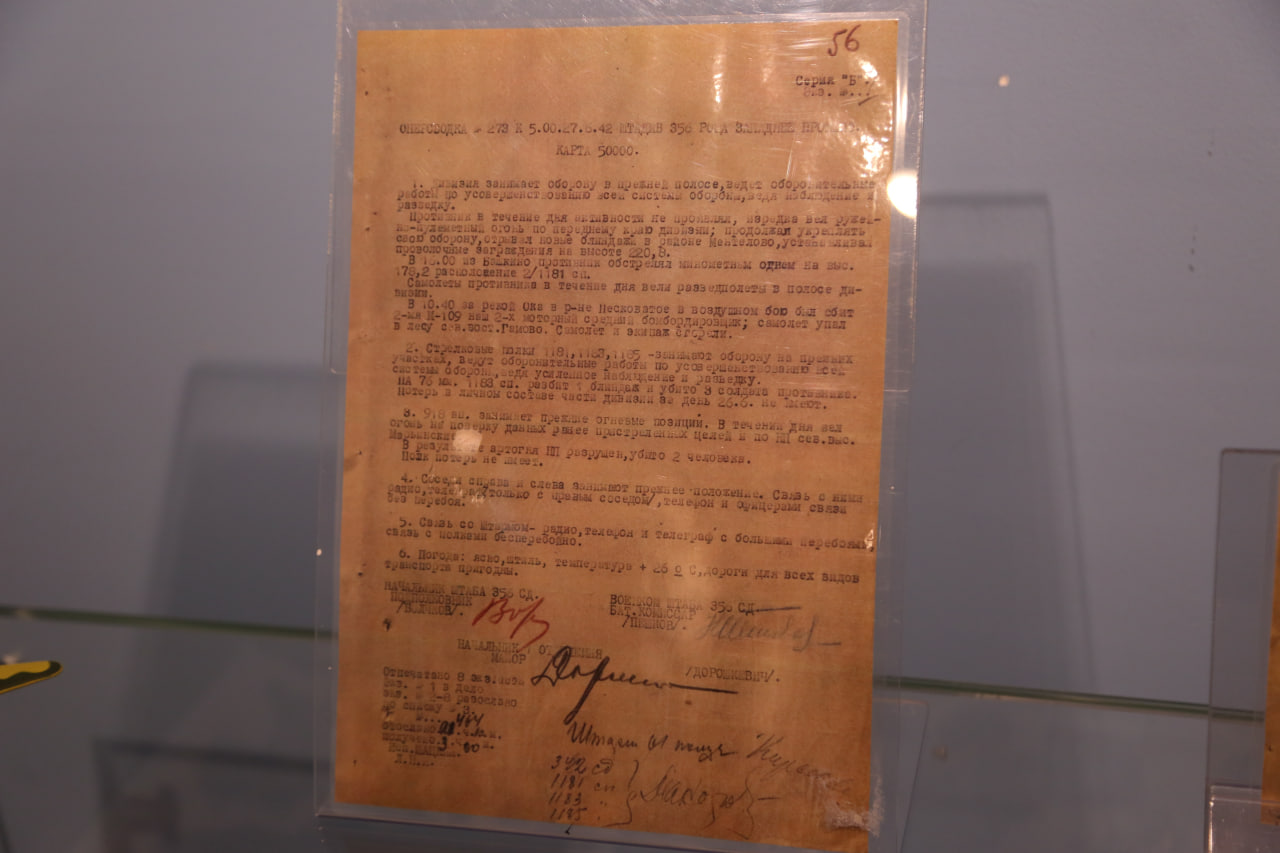 56
Серия "Б".
Экз. №...
ОПЕРСВОДКА № 273 К 5.00.27.6.42 ШТАДИВ 356 РОЩА ЗАПАДНЕЕ
КАРТА 50000.
1. Дивизия занимает оборону в прежней полосе,ведет оборонительные
работы по усовершенствованию всей системы обороны,ведя наблюдение и
разведку.
Противник в течение дня активности не проявлял, изредка вел ружей-
но-пулеметный огонь по переднему краю дивизии; продолжал укреплять
свою оборону,отрывал новые блиндажи в районе Ментелово,устанавливал
проволочные заграждения на высоте 220,8.
В 18.00 из Башкино противник обстрелял минометным огнем на выс.
178,2 расположение 2/1181 сп.
Самолеты противника в течение дня вели разведполеты в полосе ди-
визии.
В 10.40 за рекой Ока в р-не Песковатое в воздушном бою был сбит
2-мя М-109 наш 2-х моторный средний бомбардировщик; самолет упал
в лесу сев.вост.Гамово. Самолет и экипаж сгорели.
2. Стрелковые полки 1181,1183,1185 -занимают оборону на прежних
участках, ведут оборонительные работы по усовершенствованию всей
системы обороны,ведя усиленное наблюдение и разведку.
ПА 76 мм. 1183 сп. разбит 1 блиндаж и убито 3 солдата противника.
Потерь в личном составе части дивизии за день 26.6. не имеют.
3. 918 ап. занимает прежние огневые позиции. В течении дня вел
огонь на поверку данных ранее пристрелянных целей и по НП сев.выс.
Марьинские.
В результате артогня НП разрушен,убито 2 человека.
Полк потерь не имеет.
4. Соседи справа и слева занимают прежнее положение. Связь с ними
радио,телеграф/только с правым соседом/,телефон и офицерами связи
без перебоя.
5. Связь со штармом- радио,телефон и телеграф с большими перебоями,
связь с полками бесперебойно.
6. Погода: ясно,штиль, температура + 26 о С,дороги для всех видов
транспорта пригодны.
НАЧАЛЬНИК ШТАБА 356 СД.
ПОДПОЛКОВНИК
/ВОЛЧКОВ/.
ВОЕНКОМ ШТАБА 356 СД
БАТ.КОМИССАР
/ПЕШКОВ/.
НАЧАЛЬНИК 1 ОТДЕЛЕНИЯ
МАЙОР
/ДОРОШКЕВИЧ/.
Отпечатано 8 экз.
экз. № 1 в дело
экз. № 2-8 разослано
по списку № 3.
отослано
получено
342 сд
1181 сп
1183 "
1185 "